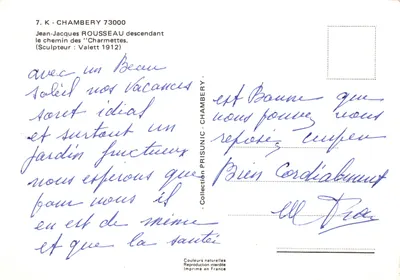 7. K - CHAMBERY 73000
Jean-Jacques ROUSSEAU descendant
le chemin des "Charmettes.
(Sculpteur : Valett 1912)
avec un Beau
soleil nos vacances
sont idial
et surtout un
jardin fructueux
nous esperons que
pour nous il
en est de mime
et que la santée
- Collection PRISUNIC - CHAMBERY -
est Bonne que
nous pouvez vous
reposez
Bien Cordialement
Couleurs naturelles
Reproduction interdite
Imprimé en France